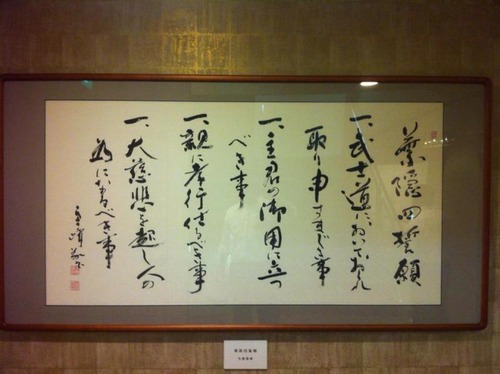 葉隠四誓願
一、武士道においておくれ
取り申すまじき事
一、主君の御用に立つ
べき事
一、親に孝行仕るべき事
一、大慈悲を起し人の
為になるべき事
葉隠四誓願